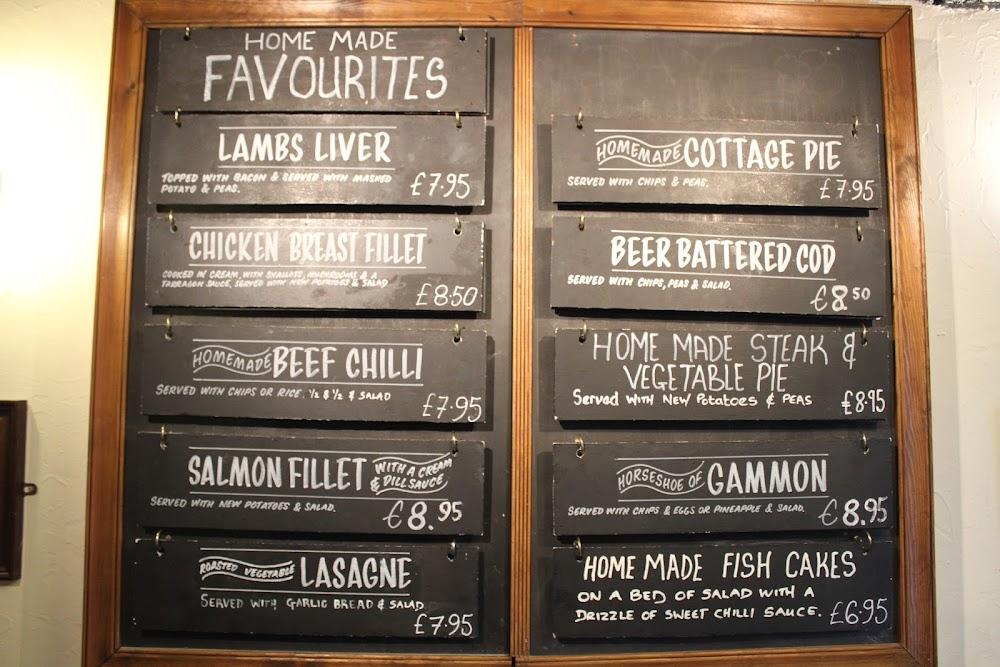 HOME MADE
FAVOURITES
LAMBS LIVER
TOPPED WITH BACON & SERVED WITH MASHED
POTATO & PEAS.
£7.95
CHICKEN BREAST FILLET
COOKED IN CREAM, WITH SHALLOTS, MUSHROOMS & A
TARRAGON SAUCE, SERVED WITH NEW POTATOES & SALAD
£8.50
HOMEMADE BEEF CHILLI
SERVED WITH CHIPS OR RICE. ½ & ½ & SALAD
£7.95
SALMON FILLET WITH A CREAM
& DILL SAUCE
SERVED WITH NEW POTATOES & SALAD.
£8.95
ROASTED VEGETABLE LASAGNE
SERVED WITH GARLIC BREAD & SALAD
£7.95
HOMEMADE COTTAGE PIE
SERVED WITH CHIPS & PEAS.
£7.95
BEER BATTERED COD
SERVED WITH CHIPS, PEAS & SALAD.
£8.50
HOME MADE STEAK &
VEGETABLE PIE
Served WITH NEW POTATOES & PEAS
£8.95
HORSESHOE OF GAMMON
SERVED WITH CHIPS & EGGS OR PINEAPPLE & SALAD.
£8.95
HOME MADE FISH CAKES
ON A BED OF SALAD WITH A
DRIZZLE OF SWEET CHILLI SAUCE.
£6.95